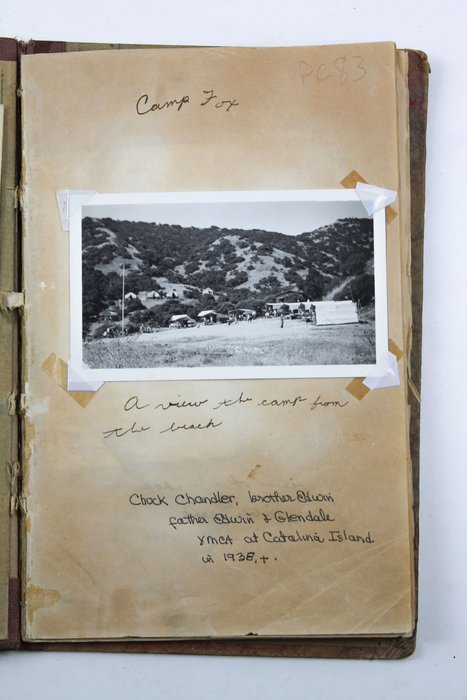 PC83
Camp Fox
A view the camp from
the beach
Chuck Chandler, brother
father & Glendale
YMCA at Catalina Island
in 1938, +.